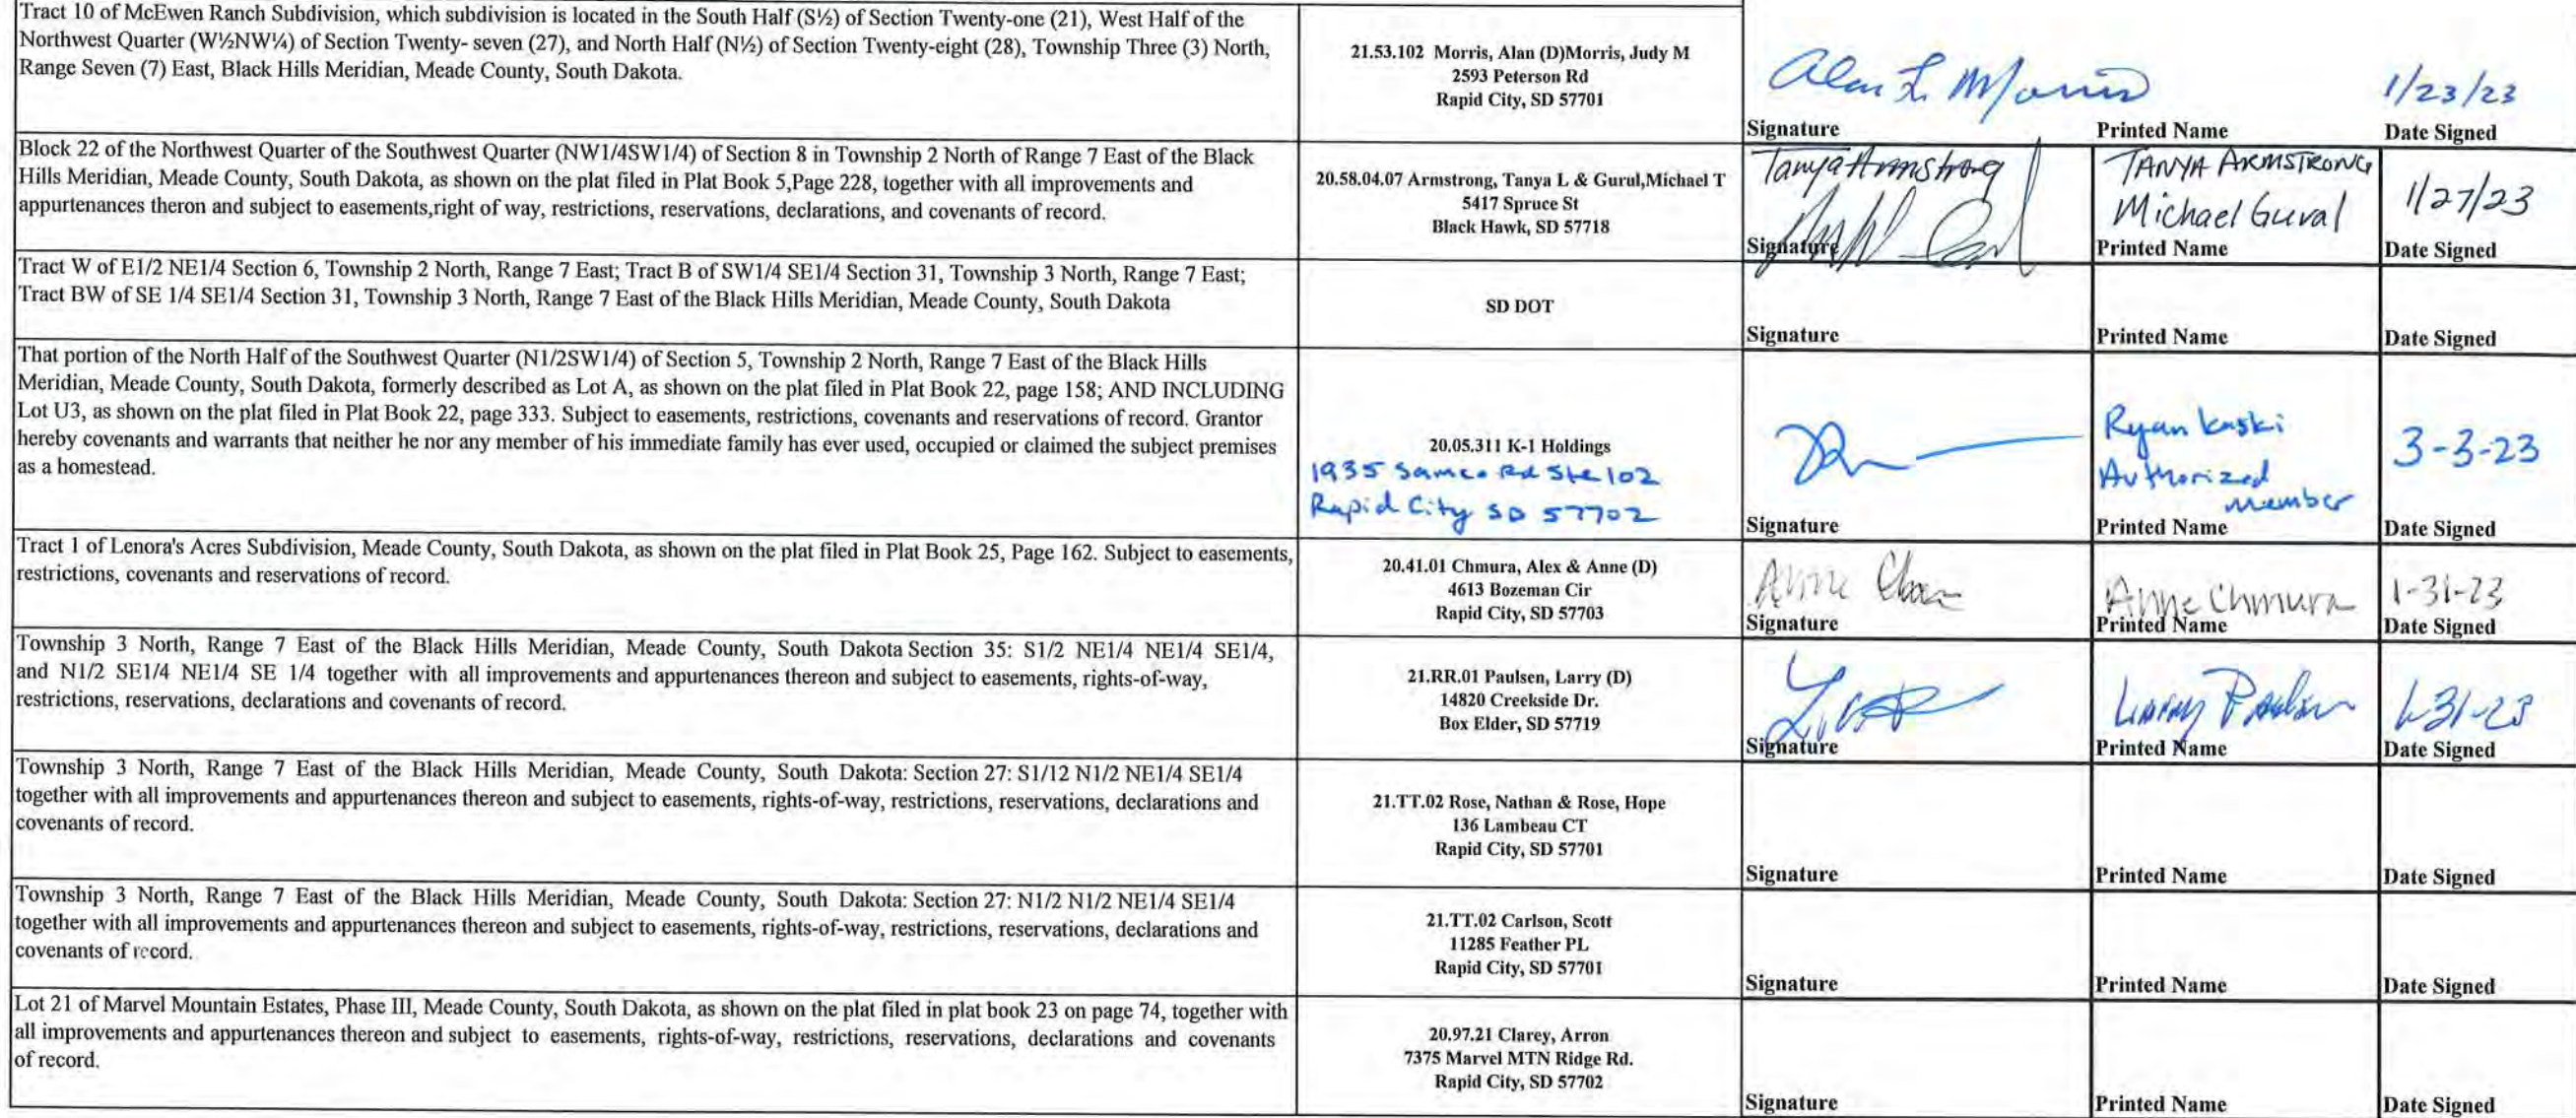 Tract 10 of McEwen Ranch Subdivision, which subdivision is located in the South Half (S½) of Section Twenty-one (21), West Half of the
Northwest Quarter (W½NW¼) of Section Twenty- seven (27), and North Half (N½) of Section Twenty-eight (28), Township Three (3) North,
Range Seven (7) East, Black Hills Meridian, Meade County, South Dakota.
21.53.102 Morris, Alan (D)Morris, Judy M
2593 Peterson Rd
Rapid City, SD 57701
Alan L Morris
1/23/23
Signature
Printed Name
Date Signed
Block 22 of the Northwest Quarter of the Southwest Quarter (NW1/4SW1/4) of Section 8 in Township 2 North of Range 7 East of the Black
Hills Meridian, Meade County, South Dakota, as shown on the plat filed in Plat Book 5,Page 228, together with all improvements and
appurtenances theron and subject to easements,right of way, restrictions, reservations, declarations, and covenants of record.
20.58.04.07 Armstrong, Tanya L & Gurul,Michael T
5417 Spruce St
Black Hawk, SD 57718
Tanya Armstrong
Signature
TANYA ARMSTRONG
Michael Guval
Printed Name
1/27/23
Date Signed
Tract W of E1/2 NE1/4 Section 6, Township 2 North, Range 7 East; Tract B of SW1/4 SE1/4 Section 31, Township 3 North, Range 7 East;
Tract BW of SE 1/4 SE1/4 Section 31, Township 3 North, Range 7 East of the Black Hills Meridian, Meade County, South Dakota
SD DOT
Signature
Printed Name
Date Signed
That portion of the North Half of the Southwest Quarter (N1/2SW1/4) of Section 5, Township 2 North, Range 7 East of the Black Hills
Meridian, Meade County, South Dakota, formerly described as Lot A, as shown on the plat filed in Plat Book 22, page 158; AND INCLUDING
Lot U3, as shown on the plat filed in Plat Book 22, page 333. Subject to easements, restrictions, covenants and reservations of record. Grantor
hereby covenants and warrants that neither he nor any member of his immediate family has ever used, occupied or claimed the subject premises
as a homestead.
20.05.311 K-1 Holdings
1935 Samco Rd Ste 102
Rapid City SD 57702
Signature
Ryan Kaski
Authorized
member
Printed Name
3-3-23
Date Signed
Tract 1 of Lenora's Acres Subdivision, Meade County, South Dakota, as shown on the plat filed in Plat Book 25, Page 162. Subject to easements,
restrictions, covenants and reservations of record.
20.41.01 Chmura, Alex & Anne (D)
4613 Bozeman Cir
Rapid City, SD 57703
Anne
Signature
Anne Chmura
Printed Name
1-31-23
Date Signed
Township 3 North, Range 7 East of the Black Hills Meridian, Meade County, South Dakota Section 35: S1/2 NE1/4 NE1/4 SE1/4,
and N1/2 SE1/4 NE1/4 SE 1/4 together with all improvements and appurtenances thereon and subject to easements, rights-of-way,
restrictions, reservations, declarations and covenants of record.
21.RR.01 Paulsen, Larry (D)
14820 Creekside Dr.
Box Elder, SD 57719
Signature
Larry Paulsen
Printed Name
1-31-23
Date Signed
Township 3 North, Range 7 East of the Black Hills Meridian, Meade County, South Dakota: Section 27: S1/12 N1/2 NE1/4 SE1/4
together with all improvements and appurtenances thereon and subject to easements, rights-of-way, restrictions, reservations, declarations and
covenants of record.
21.TT.02 Rose, Nathan & Rose, Hope
136 Lambeau CT
Rapid City, SD 57701
Signature
Printed Name
Date Signed
Township 3 North, Range 7 East of the Black Hills Meridian, Meade County, South Dakota: Section 27: N1/2 N1/2 NE1/4 SE1/4
together with all improvements and appurtenances thereon and subject to easements, rights-of-way, restrictions, reservations, declarations and
covenants of record.
21.TT.02 Carlson, Scott
11285 Feather PL
Rapid City, SD 57701
Signature
Printed Name
Date Signed
Lot 21 of Marvel Mountain Estates, Phase III, Meade County, South Dakota, as shown on the plat filed in plat book 23 on page 74, together with
all improvements and appurtenances thereon and subject to easements, rights-of-way, restrictions, reservations, declarations and covenants
of record.
20.97.21 Clarey, Arron
7375 Marvel MTN Ridge Rd.
Rapid City, SD 57702
Signature
Printed Name
Date Signed